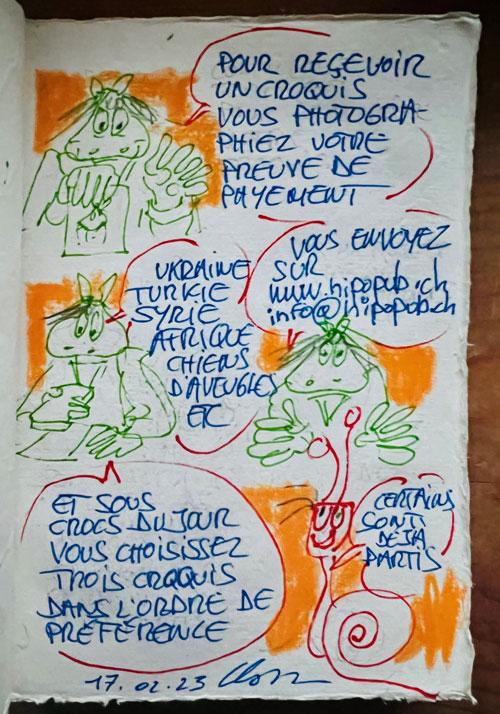 POUR REÇEVOIR
UN CROQUIS
VOUS PHOTOGRA-
PHIEZ VOTRE
PREUVE DE
PAYEMENT
VOUS ENVOYEZ
SUR
www.hipopub.ch
info@hipopub.ch
UKRAINE
TURKIE
SYRIE
AFRIQUE
CHIENS
D'AVEUGLES
ETC
ET SOUS
CROCS DU JOUR
VOUS CHOISISSEZ
TROIS CROQUIS
DANS L'ORDRE DE
PRÉFÉRENCE
CERTAINS
SONT
DÉJA
PARTIS
17.02.23